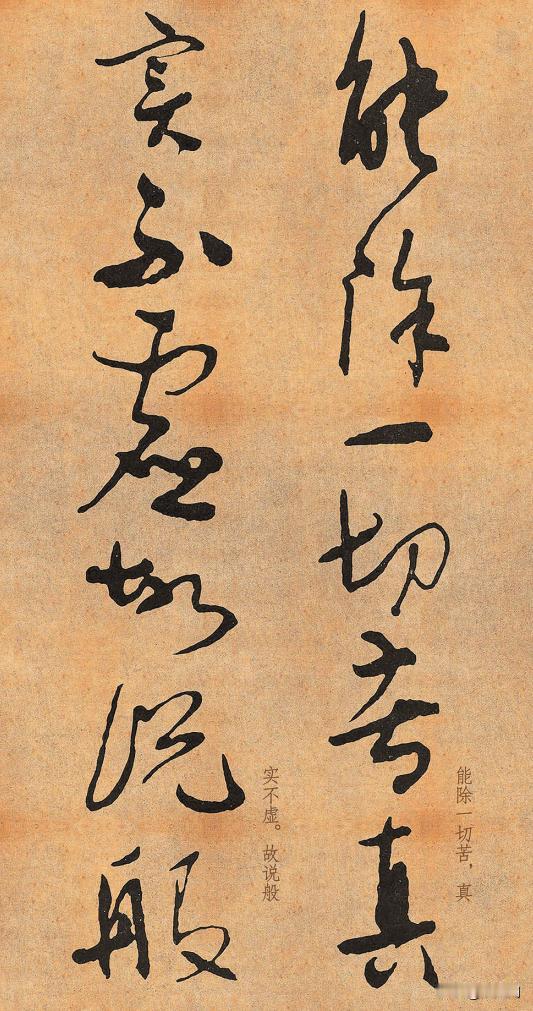 能除一切苦真
能除一切苦，真
实不虚故说般
实不虚。故说般